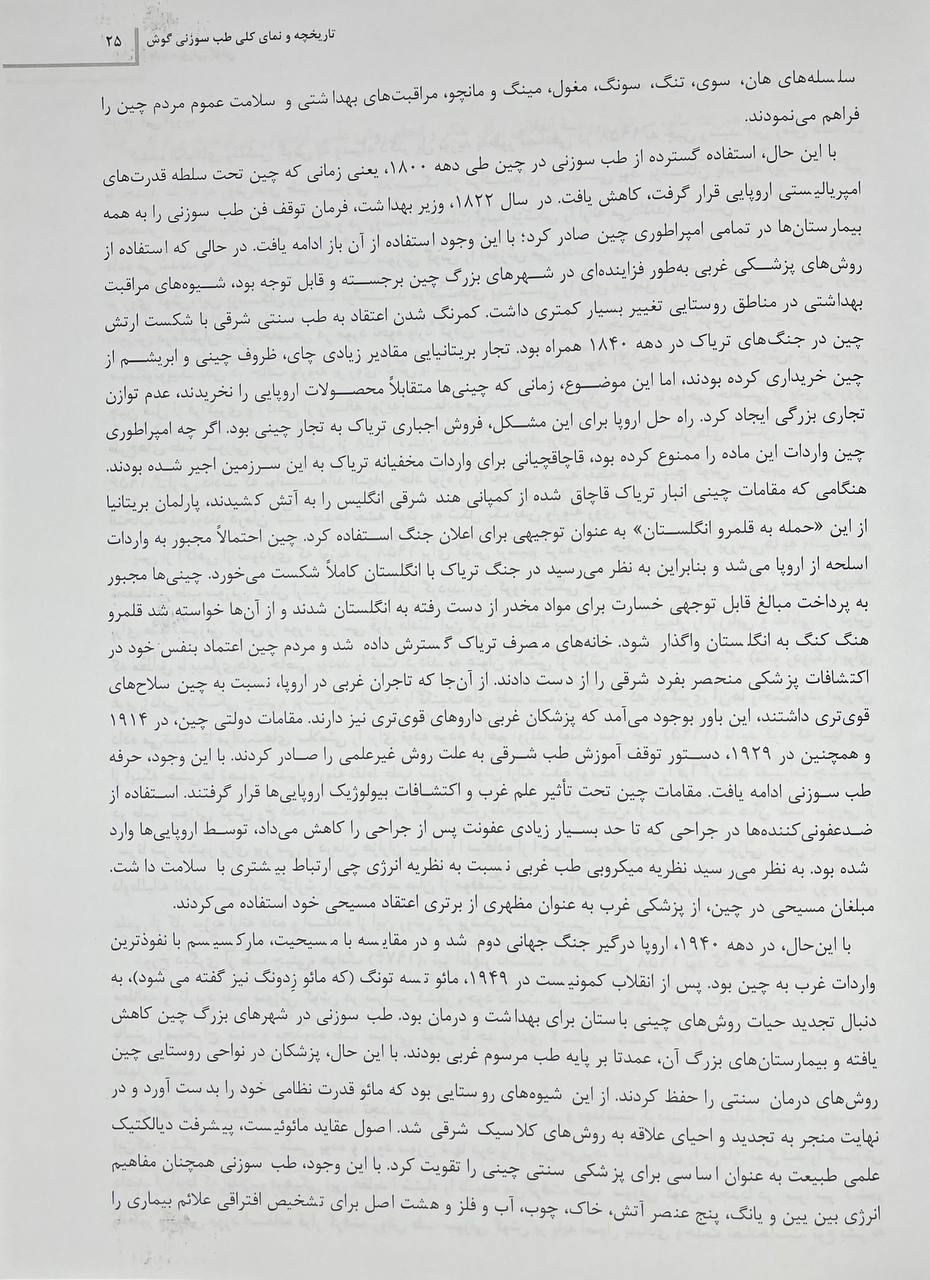 تاریخچه و نمای کلی طب سوزنی گوش ۲۵
سلسله‌های هان، سوی، تنگ، سونگ، مغول، مینگ و مانچو، مراقبت‌های بهداشتی و سلامت عموم مردم چین را
فراهم می‌نمودند.
با این حال، استفاده گسترده از طب سوزنی در چین طی دهه ۱۸۰۰، یعنی زمانی که چین تحت سلطه قدرت‌های
امپریالیستی اروپایی قرار گرفت، کاهش یافت. در سال ۱۸۲۲، وزیر بهداشت، فرمان توقف فن طب سوزنی را به همه
بیمارستان‌ها در تمامی امپراطوری چین صادر کرد؛ با این وجود استفاده از آن باز ادامه یافت. در حالی که استفاده از
روش‌های پزشکی غربی به‌طور فزاینده‌ای در شهرهای بزرگ چین برجسته و قابل توجه بود، شیوه‌های مراقبت
بهداشتی در مناطق روستایی تغییر بسیار کمتری داشت. کمرنگ شدن اعتقاد به طب سنتی شرقی با شکست ارتش
چین در جنگ‌های تریاک در دهه ۱۸۴۰ همراه بود. تجار بریتانیایی مقادیر زیادی چای، ظروف چینی و ابریشم از
چین خریداری کرده بودند، اما این موضوع، زمانی که چینی‌ها متقابلاً محصولات اروپایی را نخریدند، عدم توازن
تجاری بزرگی ایجاد کرد. راه حل اروپا برای این مشکل، فروش اجباری تریاک به تجار چینی بود. اگر چه امپراطوری
چین واردات این ماده را ممنوع کرده بود، قاچاقچیانی برای واردات مخفیانه تریاک به این سرزمین اجیر شده بودند.
هنگامی که مقامات چینی انبار تریاک قاچاق شده از کمپانی هند شرقی انگلیس را به آتش کشیدند، پارلمان بریتانیا
از این «حمله به قلمرو انگلستان» به عنوان توجیهی برای اعلان جنگ استفاده کرد. چین احتمالاً مجبور به واردات
اسلحه از اروپا می‌شد و بنابراین به نظر می‌رسید در جنگ تریاک با انگلستان کاملاً شکست می‌خورد. چینی‌ها مجبور
به پرداخت مبالغ قابل توجهی خسارت برای مواد مخدر از دست رفته به انگلستان شدند و از آن‌ها خواسته شد قلمرو
هنگ کنگ به انگلستان واگذار شود. خانه‌های مصرف تریاک گسترش داده شد و مردم چین اعتماد بنفس خود در
اکتشافات پزشکی منحصر بفرد شرقی را از دست دادند. از آن‌جا که تاجران غربی در اروپا، نسبت به چین سلاح‌های
قوی‌تری داشتند، این باور بوجود می‌آمد که پزشکان غربی داروهای قوی‌تری نیز دارند. مقامات دولتی چین، در ۱۹۱۴
و همچنین در ۱۹۲۹، دستور توقف آموزش طب شرقی به علت روش غیرعلمی را صادر کردند. با این وجود، حرفه
طب سوزنی ادامه یافت. مقامات چین تحت تأثیر علم غرب و اکتشافات بیولوژیک اروپایی‌ها قرار گرفتند. استفاده از
ضدعفونی‌کننده‌ها در جراحی که تا حد بسیار زیادی عفونت پس از جراحی را کاهش می‌داد، توسط اروپایی‌ها وارد
شده بود. به نظر می‌رسید نظریه میکروبی طب غربی نسبت به نظریه انرژی چی ارتباط بیشتری با سلامت داشت.
مبلغان مسیحی در چین، از پزشکی غرب به عنوان مظهری از برتری اعتقاد مسیحی خود استفاده می‌کردند.
با این‌حال، در دهه ۱۹۴۰، اروپا درگیر جنگ جهانی دوم شد و در مقایسه با مسیحیت، مارکسیسم با نفوذترین
واردات غرب به چین بود. پس از انقلاب کمونیست در ۱۹۴۹، مائو تسه تونگ (که مائو زِدونگ نیز گفته می شود)، به
دنبال تجدید حیات روش‌های چینی باستان برای بهداشت و درمان بود. طب سوزنی در شهرهای بزرگ چین کاهش
یافته و بیمارستان‌های بزرگ آن، عمدتا بر پایه طب مرسوم غربی بودند. با این حال، پزشکان در نواحی روستایی چین
روش‌های درمان سنتی را حفظ کردند. از این شیوه‌های روستایی بود که مائو قدرت نظامی خود را بدست آورد و در
نهایت منجر به تجدید و احیای علاقه به روش‌های کلاسیک شرقی شد. اصول عقاید مائوئیست، پیشرفت دیالکتیک
علمی طبیعت به عنوان اساسی برای پزشکی سنتی چینی را تقویت کرد. با این وجود، طب سوزنی همچنان مفاهیم
انرژی بین یین و یانگ، پنج عنصر آتش، خاک، چوب، آب و فلز و هشت اصل برای تشخیص افتراقی علائم بیماری را